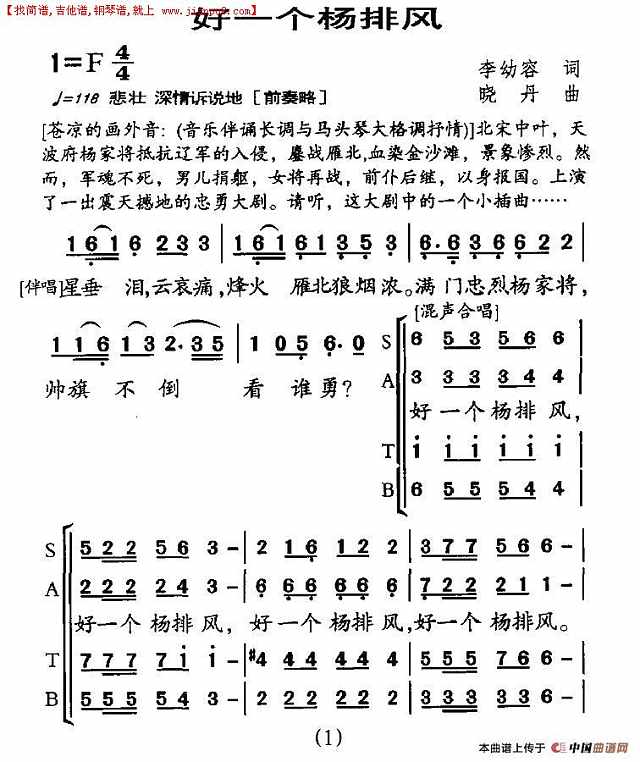 【找简谱,吉他谱,钢琴谱,就上 www.jianpu8.com】
好一个杨排风
1=F 4/4
李幼容 词
♩=118 悲壮 深情诉说地 [前奏略]
晓丹 曲
[苍凉的画外音：(音乐伴诵长调与马头琴大格调抒情)]北宋中叶，天
波府杨家将抵抗辽军的入侵，鏖战雁北,血染金沙滩，景象惨烈。然
而，军魂不死，男儿捐躯，女将再战，前仆后继，以身报国。上演
了一出震天撼地的忠勇大剧。请听，这大剧中的一个小插曲……
1 6 1 6 2 3 3 | 1 6 1 6 1 3 5 3 | 6·6 3 6 6 2 2
[伴唱]星垂 泪,云哀痛,烽火 雁北狼烟浓。满门忠烈杨家将，
[混声合唱]
1 1 6 1 3 2·3 5 | 1 0 5 6·0
帅旗 不 倒 看 谁勇?
S 6 5 3 5 6 6
A 3 3 3 3 4 4
好一个杨排风，
T i i i i i i
B 6 5 5 5 4 4
S 5 2 2 5 6 3 - | 2 1 6 1 2 2 | 3 7 7 5 6 6 -
A 2 2 2 2 4 3 - | 6 6 6 6 6 6 | 7 2 2 2 1 1 -
好一个 杨排 风，好一个 杨排风,好一个 杨排风。
T 7 7 7 7 i i - | #4 4 4 4 4 4 | 5 5 5 7 6 6 -
B 5 5 5 5 4 3 - | 2 2 2 2 2 2 | 3 3 3 3 6 6 -
(1)
本曲谱上传于 中国曲谱网